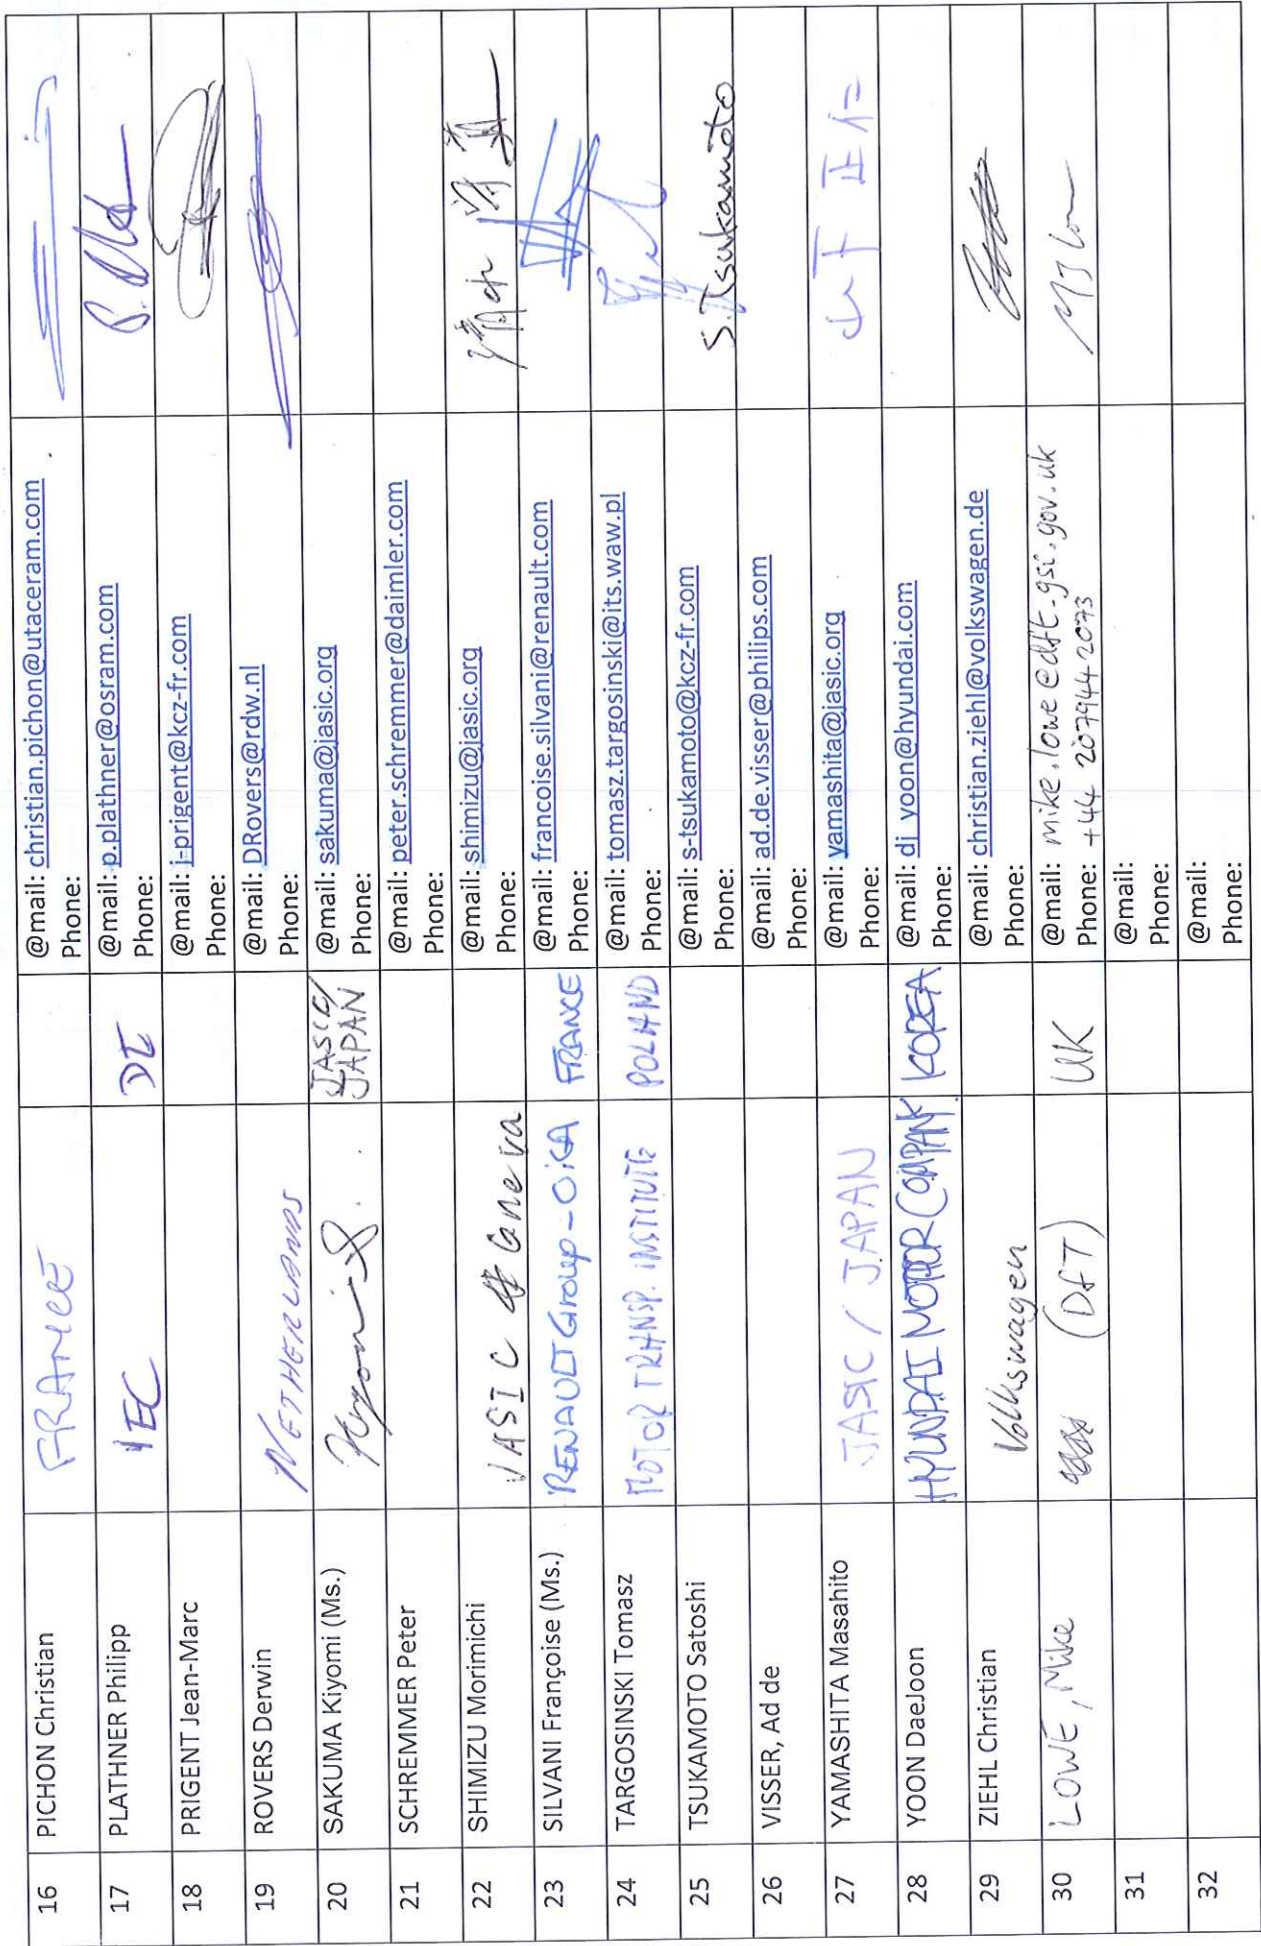 16 PICHON Christian FRANCE @mail: christian.pichon@utaceram.com
Phone:
17 PLATHNER Philipp IEC DE @mail: p.plathner@osram.com
Phone:
18 PRIGENT Jean-Marc @mail: j-prigent@kcz-fr.com
Phone:
19 ROVERS Derwin NETHERLANDS @mail: DRovers@rdw.nl
Phone:
20 SAKUMA Kiyomi (Ms.) Kiyomi S. JASIC/ @mail: sakuma@jasic.org
JAPAN Phone:
21 SCHREMMER Peter @mail: peter.schremmer@daimler.com
Phone:
22 SHIMIZU Morimichi JASIC Geneva @mail: shimizu@jasic.org
Phone:
23 SILVANI Françoise (Ms.) RENAULT Group - OICA FRANCE @mail: francoise.silvani@renault.com
Phone:
24 TARGOSINSKI Tomasz MOTOR TRANSP. INSTITUTE POLAND @mail: tomasz.targosinski@its.waw.pl
Phone:
25 TSUKAMOTO Satoshi @mail: s-tsukamoto@kcz-fr.com S. Tsukamoto
Phone:
26 VISSER, Ad de @mail: ad.de.visser@philips.com
Phone:
27 YAMASHITA Masahito JASIC / JAPAN @mail: yamashita@jasic.org 山下 正仁
Phone:
28 YOON DaeJoon HYUNDAI MOTOR COMPANY KOREA @mail: dj_yoon@hyundai.com
Phone:
29 ZIEHL Christian Volkswagen @mail: christian.ziehl@volkswagen.de
Phone:
30 LOWE, Mike (DfT) UK @mail: mike.lowe@dft.gsi.gov.uk MJ Low
Phone: +44 207944 2073
31 @mail:
Phone:
32 @mail:
Phone: